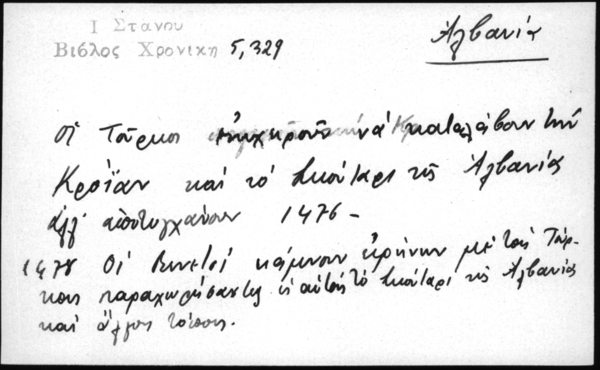 Ι Στανου
Βιβλος Χρονικη 5,329
Ἀλβανία
οἱ Τοῦρκοι νὰ καταλάβουν τὴν
Κροΐαν καὶ τὸ Σκούταρι τῆς Ἀλβανίας
ἀλλ' ἀποτυγχάνουν 1476 –
1478 Οἱ Βενετοὶ κάμνουν εἰρήνην μὲ τοὺς Τούρ-
κους παραχωρήσαντες εἰς αὐτοὺς τὸ Σκούταρι τῆς Ἀλβανίας
καὶ ἄλλους τόπους.